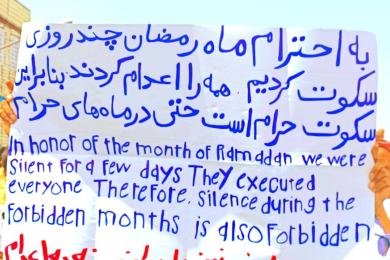 به احترام ماه رمضان چند روزی
سکوت کردیم. همه را اعدام کردند بنابراین
سکوت حرام است حتی در ماه‌های حرام
In honor of the month of Ramadan we were
Silent for a few days They executed
everyone Therefore, silence during the
Forbidden months is also Forbidden